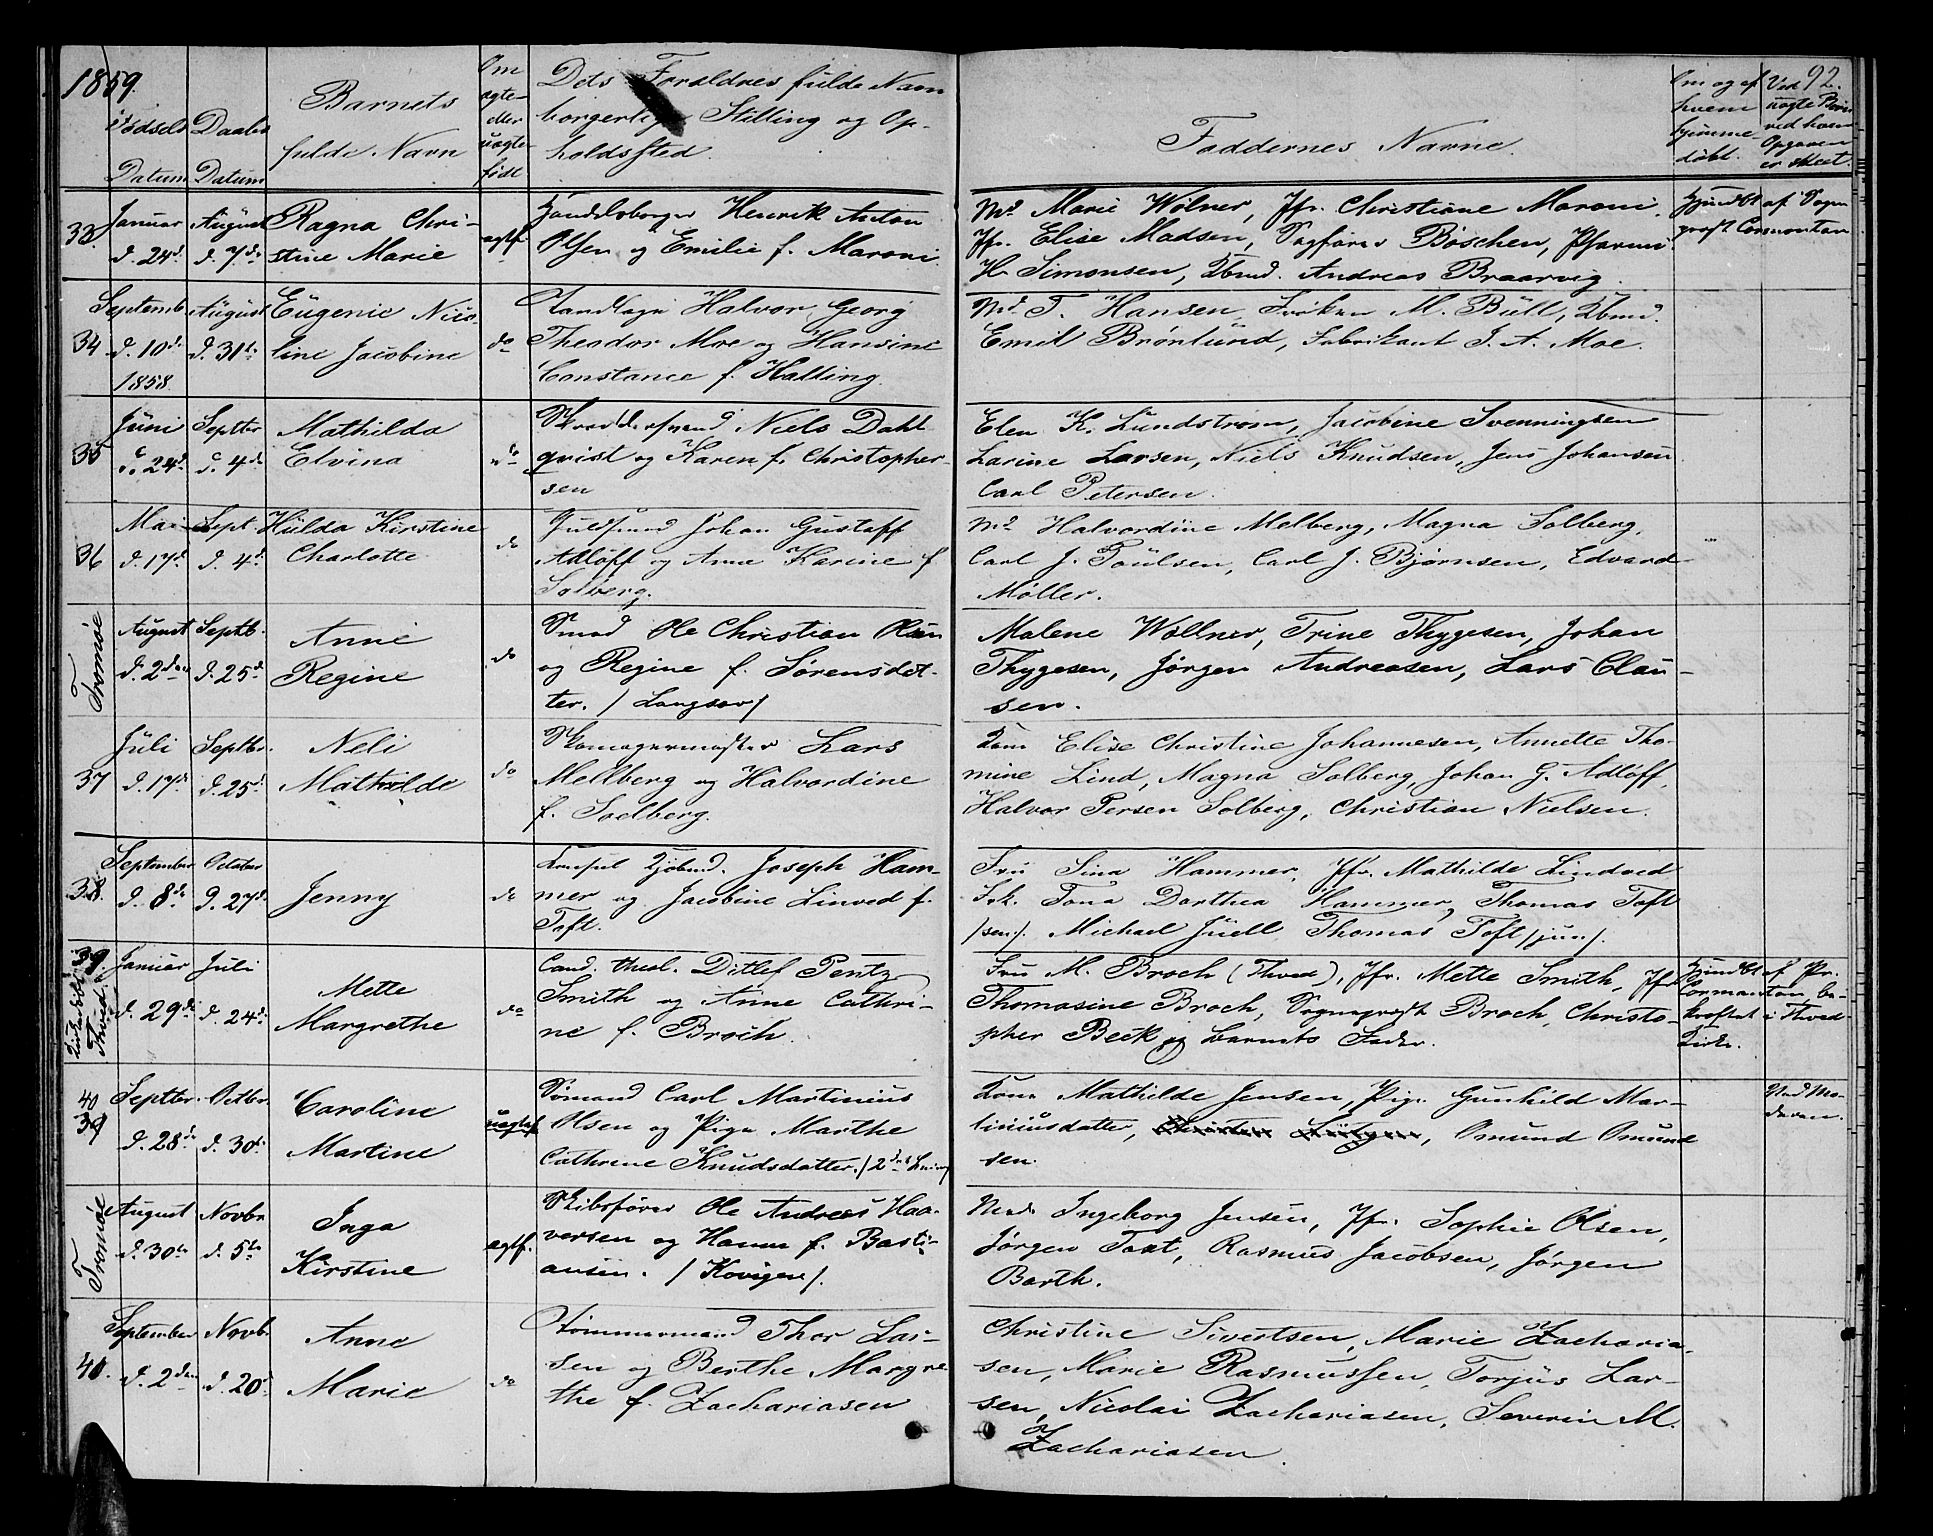 1859.
92.
Fødsels Datum
Daabs Datum
Barnets fulde Navn
Om ægte eller uægte født
Dets Forældres fulde Navn
borgerlige Stilling og Op-
holdssted.
Faddernes Navne.
Om og af hvem hjemme-døbt.
Ved uægte Børn ved hvem Opgaven er skeet.
33. Januar d. 24d. August d. 7de
Ragna Chri-
stine Marie
ægtf.
Handelsborger Henrik Anton
Olsen og Emilie f. Maroni.
Md. Marie Wölner, Jfr. Christiane Maroni,
Jfr. Elise Madsen, Sagfører Böschen,
H. Simonsen, Kbmd. Andreas Braarvig.
Hjmdbt af Sogn
prest Cormontan
34 Septemb. d. 10de 1858 August d. 31te
Eugenie Nico-
line Jacobine
do
Tandlæge Halvor Georg
Theodor Moe og Hansine
Constance f. Halling.
Md. T. Hansen, Frøken M. Büll, Kbmd.
Emil Brønlund, Fabrikant J. A. Moe.
35 Juni d. 24d. Septbr d. 4de
Mathilda
Elvina
do
Skræddersvend Niels Dahl
qvist og Karen f. Christopher-
sen
Elen K. Lundstrøm, Jacobine Svenningsen
Larine Larsen, Niels Knudsen, Jens Johansen
Carl Petersen.
36 Mai d. 17d. Sept. d. 4d.
Hulda Kirstine
Charlotte
do
Guldsmed Johan Gustaff
Adløff og Anne Karine f.
Solberg.
Md Halvordine Melberg, Magna Solberg,
Carl J. Poulsen, Carl J. Bjørnsen, Edvard
Møller.
Tromøe August d. 2den Septb. d. 25d
Anne
Regine
do
Smed Ole Christian Olsen
og Regine f. Sørensdat-
ter. / Langsæv /
Malene Wöllner, Trine Thygesen, Johan
Thygesen, Jørgen Andreasen, Lars Clau-
sen.
37 Juli d. 17d. Septbr. d. 25d
Neli
Mathilde
do
Skomagermester Lars
Mellberg og Halvordine
f. Soelberg.
Kone Elise Christine Johannesen, Annette Tho-
mine Lind, Magna Solberg, Johan G. Adløff,
Halvor Persen Solberg, Christian Nielsen.
38. September d. 8de October d. 27d.
Jenny
do
Konsul Kjøbmd. Joseph Ham-
mer og Jacobine Linved f.
Toft.
Fru Sina Hammer, Jfr. Mathilde Lindved
Frk. Tona Dorthea Hammer, Thomas Toft
/sen/. Michael Juell Thomas Toft /jun/.
39. Januar d. 29de Juli d. 24de
Mette
Margrethe
do
Cand. theol. Ditlef Pentz
Smith og Anne Cathri-
ne f. Broch.
Fru M. Broch (Thved), Jfr. Mette Smith, Jfr
Thomasine Broch, Sognepræst Broch, Christo-
pher Beck og Barnets Fader.
Hjmdbt af Pr.
Cormontan, be-
kræftet i Thved
Kirke.
40 39 Septbr. d. 28de Octbr. d. 30te
Caroline
Martine
uægtef.
Sømand Carl Martinius
Olsen og Pige Marthe
Cathrine Knudsdatter.
Kone Mathilde Jensen, Pige Gunhild Mar-
tiniusdatter, Omund Omund
sen.
Ved Mo-
deren.
Tromøe August d. 30te Novbr d. 5te
Inga
Kirstine
ægtf.
Skibsfører Ole Andreas Haa-
versen og Hanne f. Basti-
ansen. / Kovigen /.
Md. Ingeborg Jensen, Jfr. Sophie Olsen,
Jørgen Toxt, Rasmus Jacobsen, Jørgen
Barth.
40. September d. 2den Novbr d. 20d
Anne
Marie
do
Tømmermand Thor Lar-
sen og Berthe Margre
the f. Zachariasen
Christine Sivertsen, Marie Zacharia-
sen, Marie Rasmussen, Torjus Lar-
sen, Nicolai Zachariasen, Severin M.
Zachariasen.